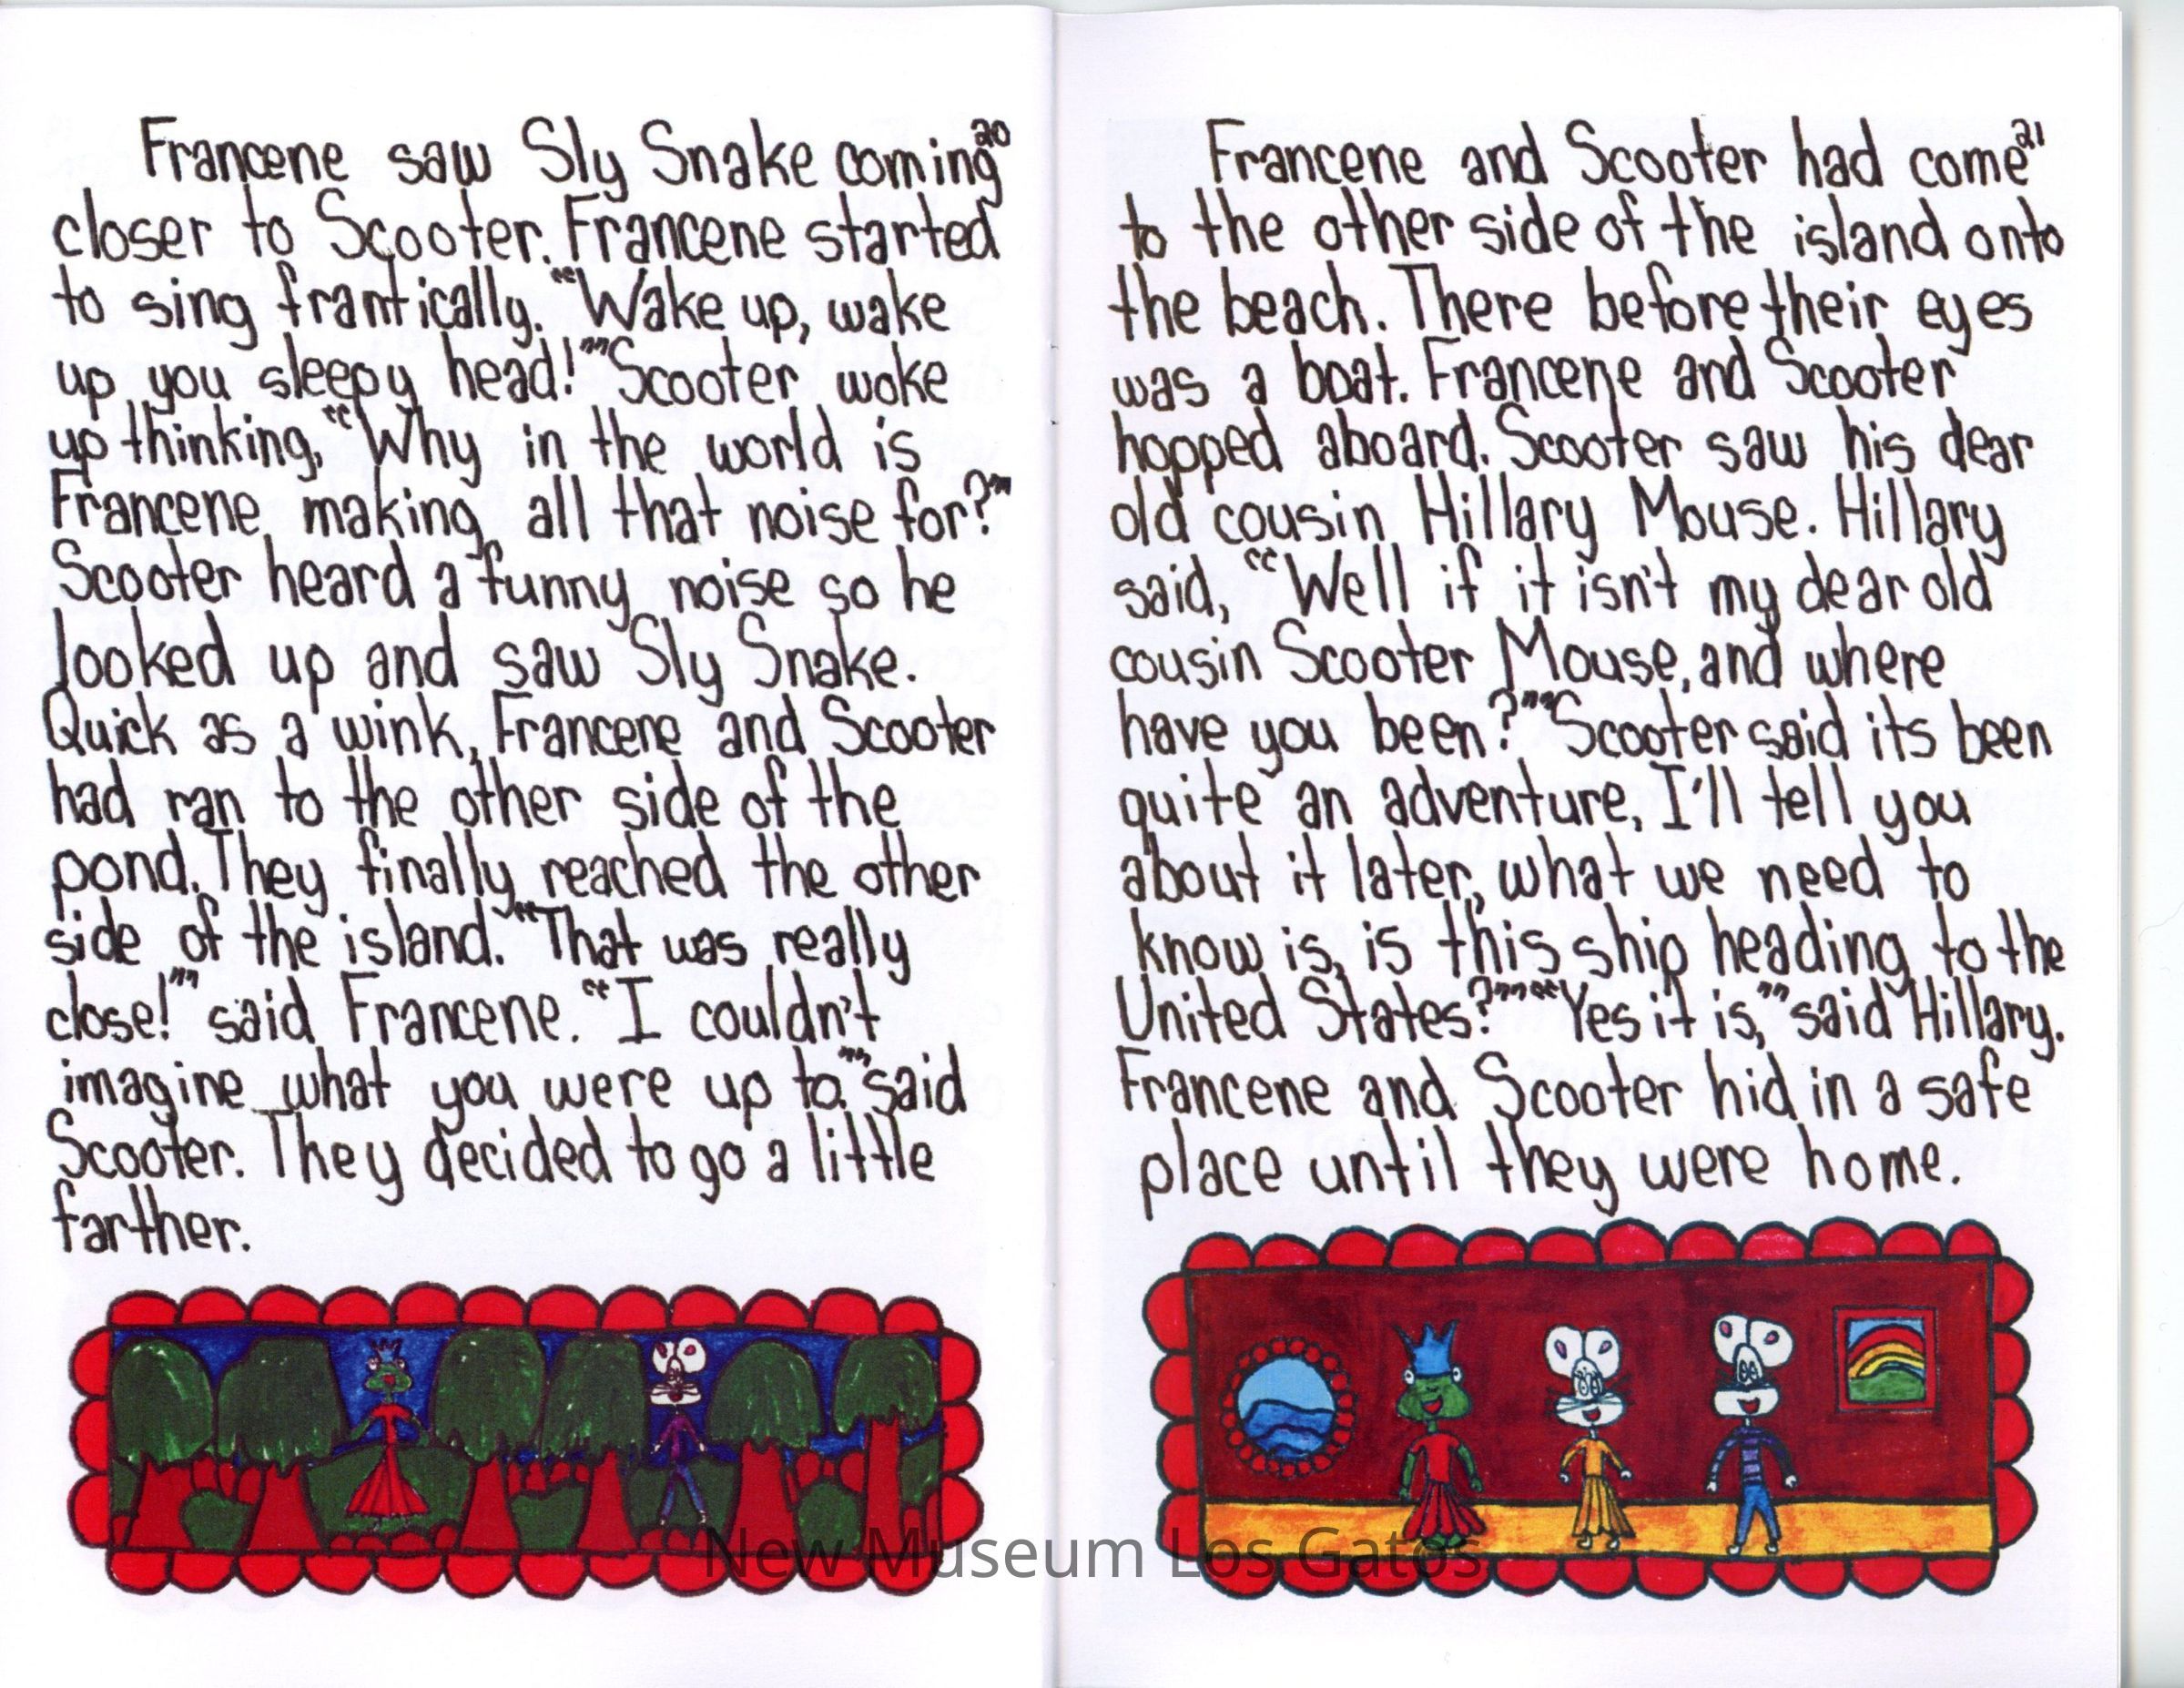 20
Francene saw Sly Snake coming
closer to Scooter. Francene started
to sing frantically. "Wake up, wake
up you sleepy head!" Scooter woke
up thinking, "Why in the world is
Francene making all that noise for?"
Scooter heard a funny noise so he
looked up and saw Sly Snake.
Quick as a wink, Francene and Scooter
had ran to the other side of the
pond. They finally reached the other
side of the island. "That was really
close!" said Francene. "I couldn't
imagine what you were up to." said
Scooter. They decided to go a little
farther.
21
Francene and Scooter had come
to the other side of the island onto
the beach. There before their eyes
was a boat. Francene and Scooter
hopped aboard. Scooter saw his dear
old cousin Hillary Mouse. Hillary
said, "Well if it isn't my dear old
cousin Scooter Mouse, and where
have you been?" "Scooter said its been
quite an adventure, I'll tell you
about it later, what we need to
know is, is this ship heading to the
United States?" "Yes it is," said Hillary.
Francene and Scooter hid in a safe
place until they were home.
New Museum Los Gatos